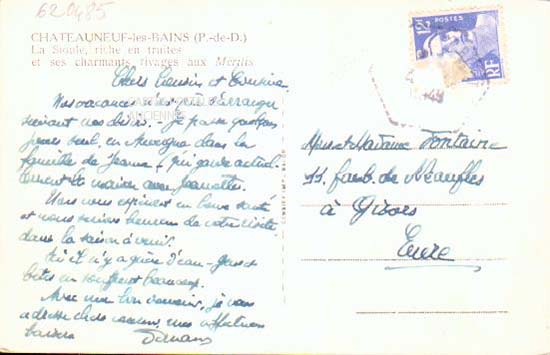 620485
CHATEAUNEUF-les-BAINS (P.-de-D.)
La Sioule, riche en truites
et ses charmants rivages aux Méritis
12F POSTES
RF
Chers Cousin et Cousine.
Nos vacances
suivant nos désirs - je passe quelques
jours seul, en Auvergne dans la
famille de Jeanne, qui garde actuel-
lement la maison avec Jeannette.
Nous vous espérons en bonne santé
et nous serions heureux de votre visite
dans la saison à venir.
Ici il n'y a guère d'eau - Gens et
bêtes en souffrent beaucoup.
Avec mon bon souvenir, je vous
adresse chers cousins, mes affectueux
baisers
Monsieur et Madame Fontaine
11, faub. de Neaufles
à Gisors
Eure